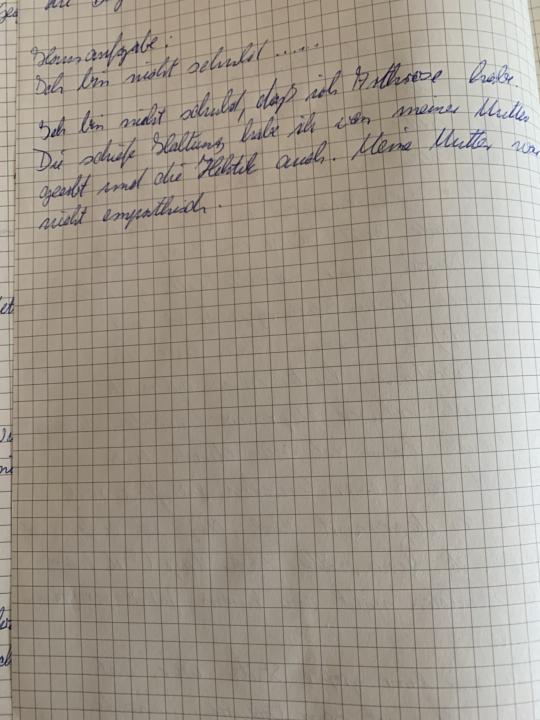 Hausaufgabe:
Ich bin nicht schuld .....
Ich bin nicht schuld, daß ich Arthrose habe.
Die schiefe Haltung habe ich von meiner Mutter
geerbt und die Hektik auch. Meine Mutter war
nicht empathisch.